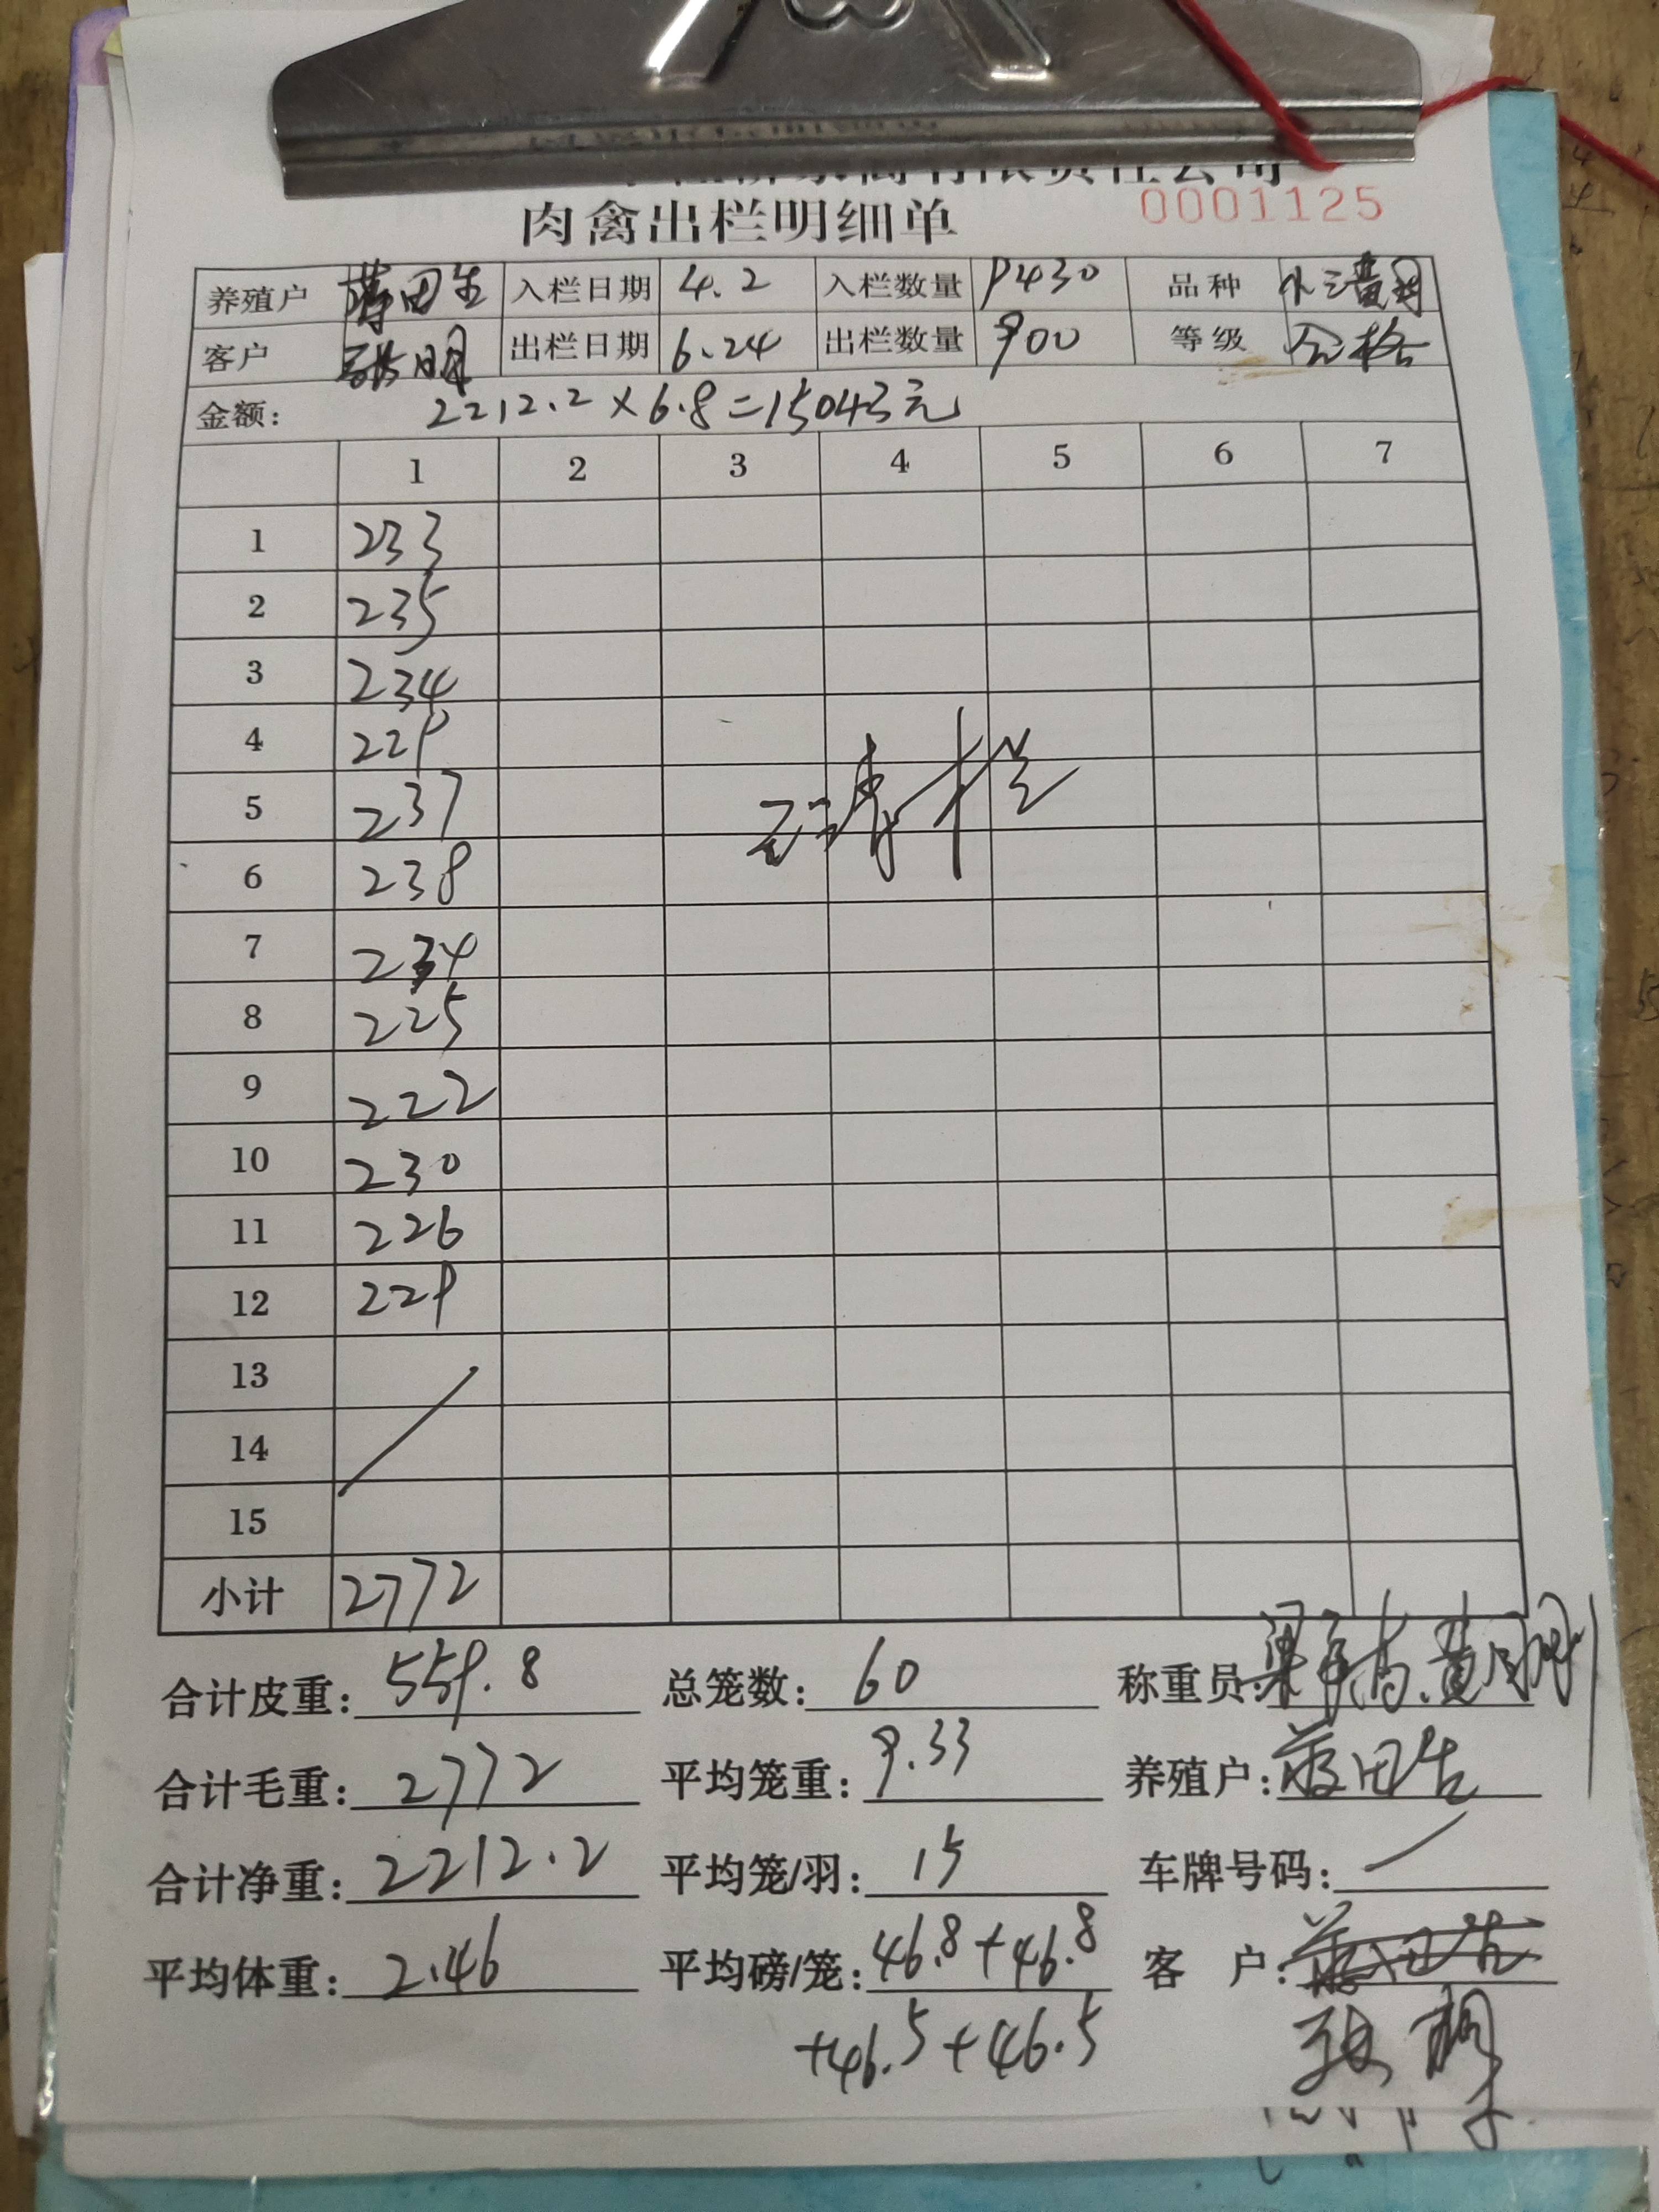 有限责任公司
肉禽出栏明细单
0001125
养殖户 蒋田生 入栏日期 4.2 入栏数量 9430 品种
客户 张明 出栏日期 6.24 出栏数量 900 等级 合格
金额: 2212.2×6.8=15043元
1 2 3 4 5 6 7
1 233
2 235
3 234
4 229
5 237
6 238
7 234
8 225
9 222
10 230
11 226
12 229
13
14
15
清栏
小计 2772
合计皮重: 559.8 总笼数: 60 称重员:
合计毛重: 2772 平均笼重: 9.33 养殖户: 蒋田生
合计净重: 2212.2 平均笼/羽: 15 车牌号码:
平均体重: 2.46 平均磅/笼: 46.8+46.8 客 户:
+46.5+46.5